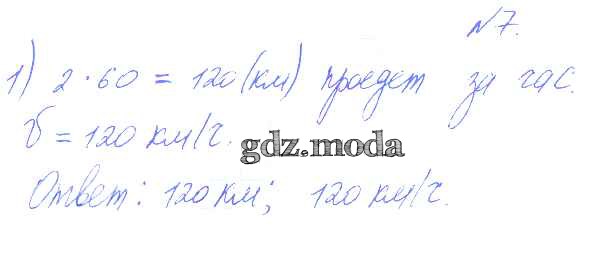 №7.
1) 2·60 = 120 (км) проедет за час.
v = 120 км/ч.
gdz.moda
Ответ: 120 км; 120 км/ч.